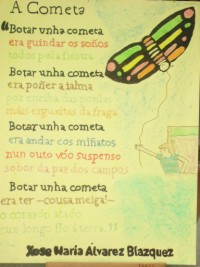 A Cometa
"Botar unha cometa
era guindar os soños
todos pela fiestra
Botar unha cometa
era poñer a ialma
por enriba dos penedos
máis ergueitas da fraga
Botar unha cometa
era andar cos miñatos
nun outo vóo suspenso
sobor da paz dos campos
Botar unha cometa
era ter —cousa meiga!—
o corazón atado
cun longo fío á terra."
Xose María Álvarez Blázquez